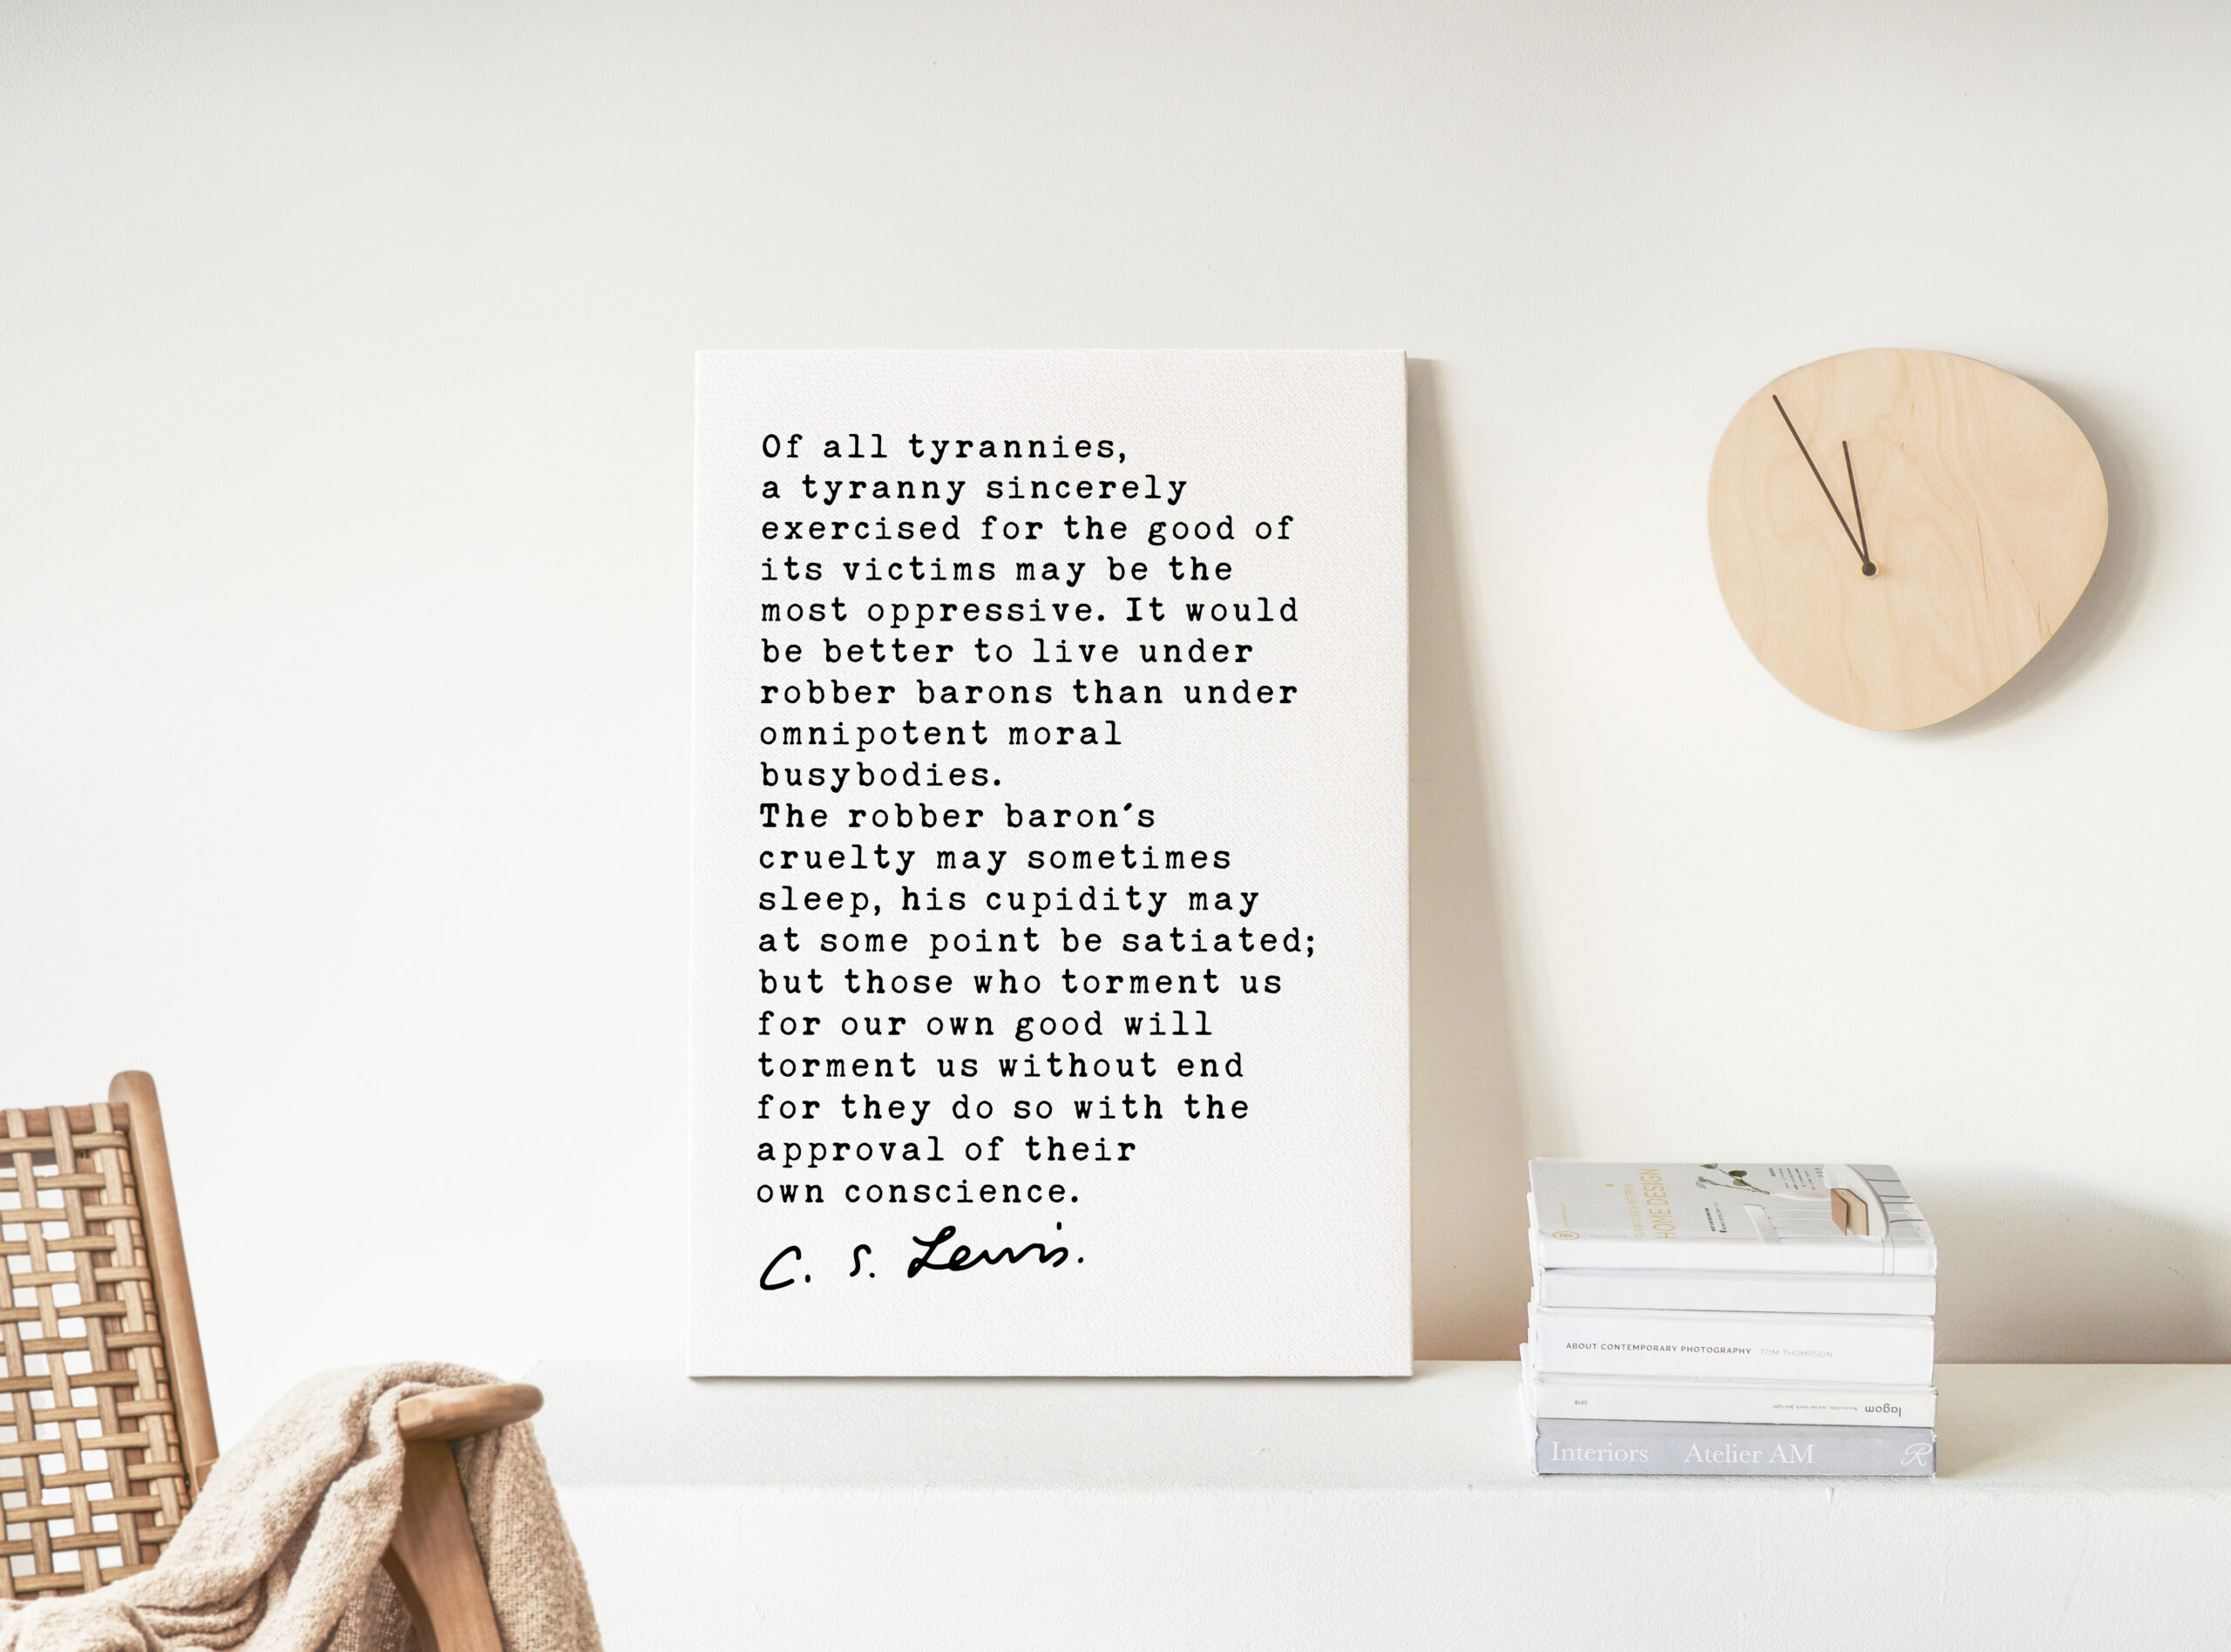 Of all tyrannies,
a tyranny sincerely
exercised for the good of
its victims may be the
most oppressive. It would
be better to live under
robber barons than under
omnipotent moral
busybodies.
The robber baron's
cruelty may sometimes
sleep, his cupidity may
at some point be satiated;
but those who torment us
for our own good will
torment us without end
for they do so with the
approval of their
own conscience.
C. S. Lewis.
HOME DESIGN
ABOUT CONTEMPORARY PHOTOGRAPHY TOM THOMPSON
2018
lagom
Interiors Atelier AM